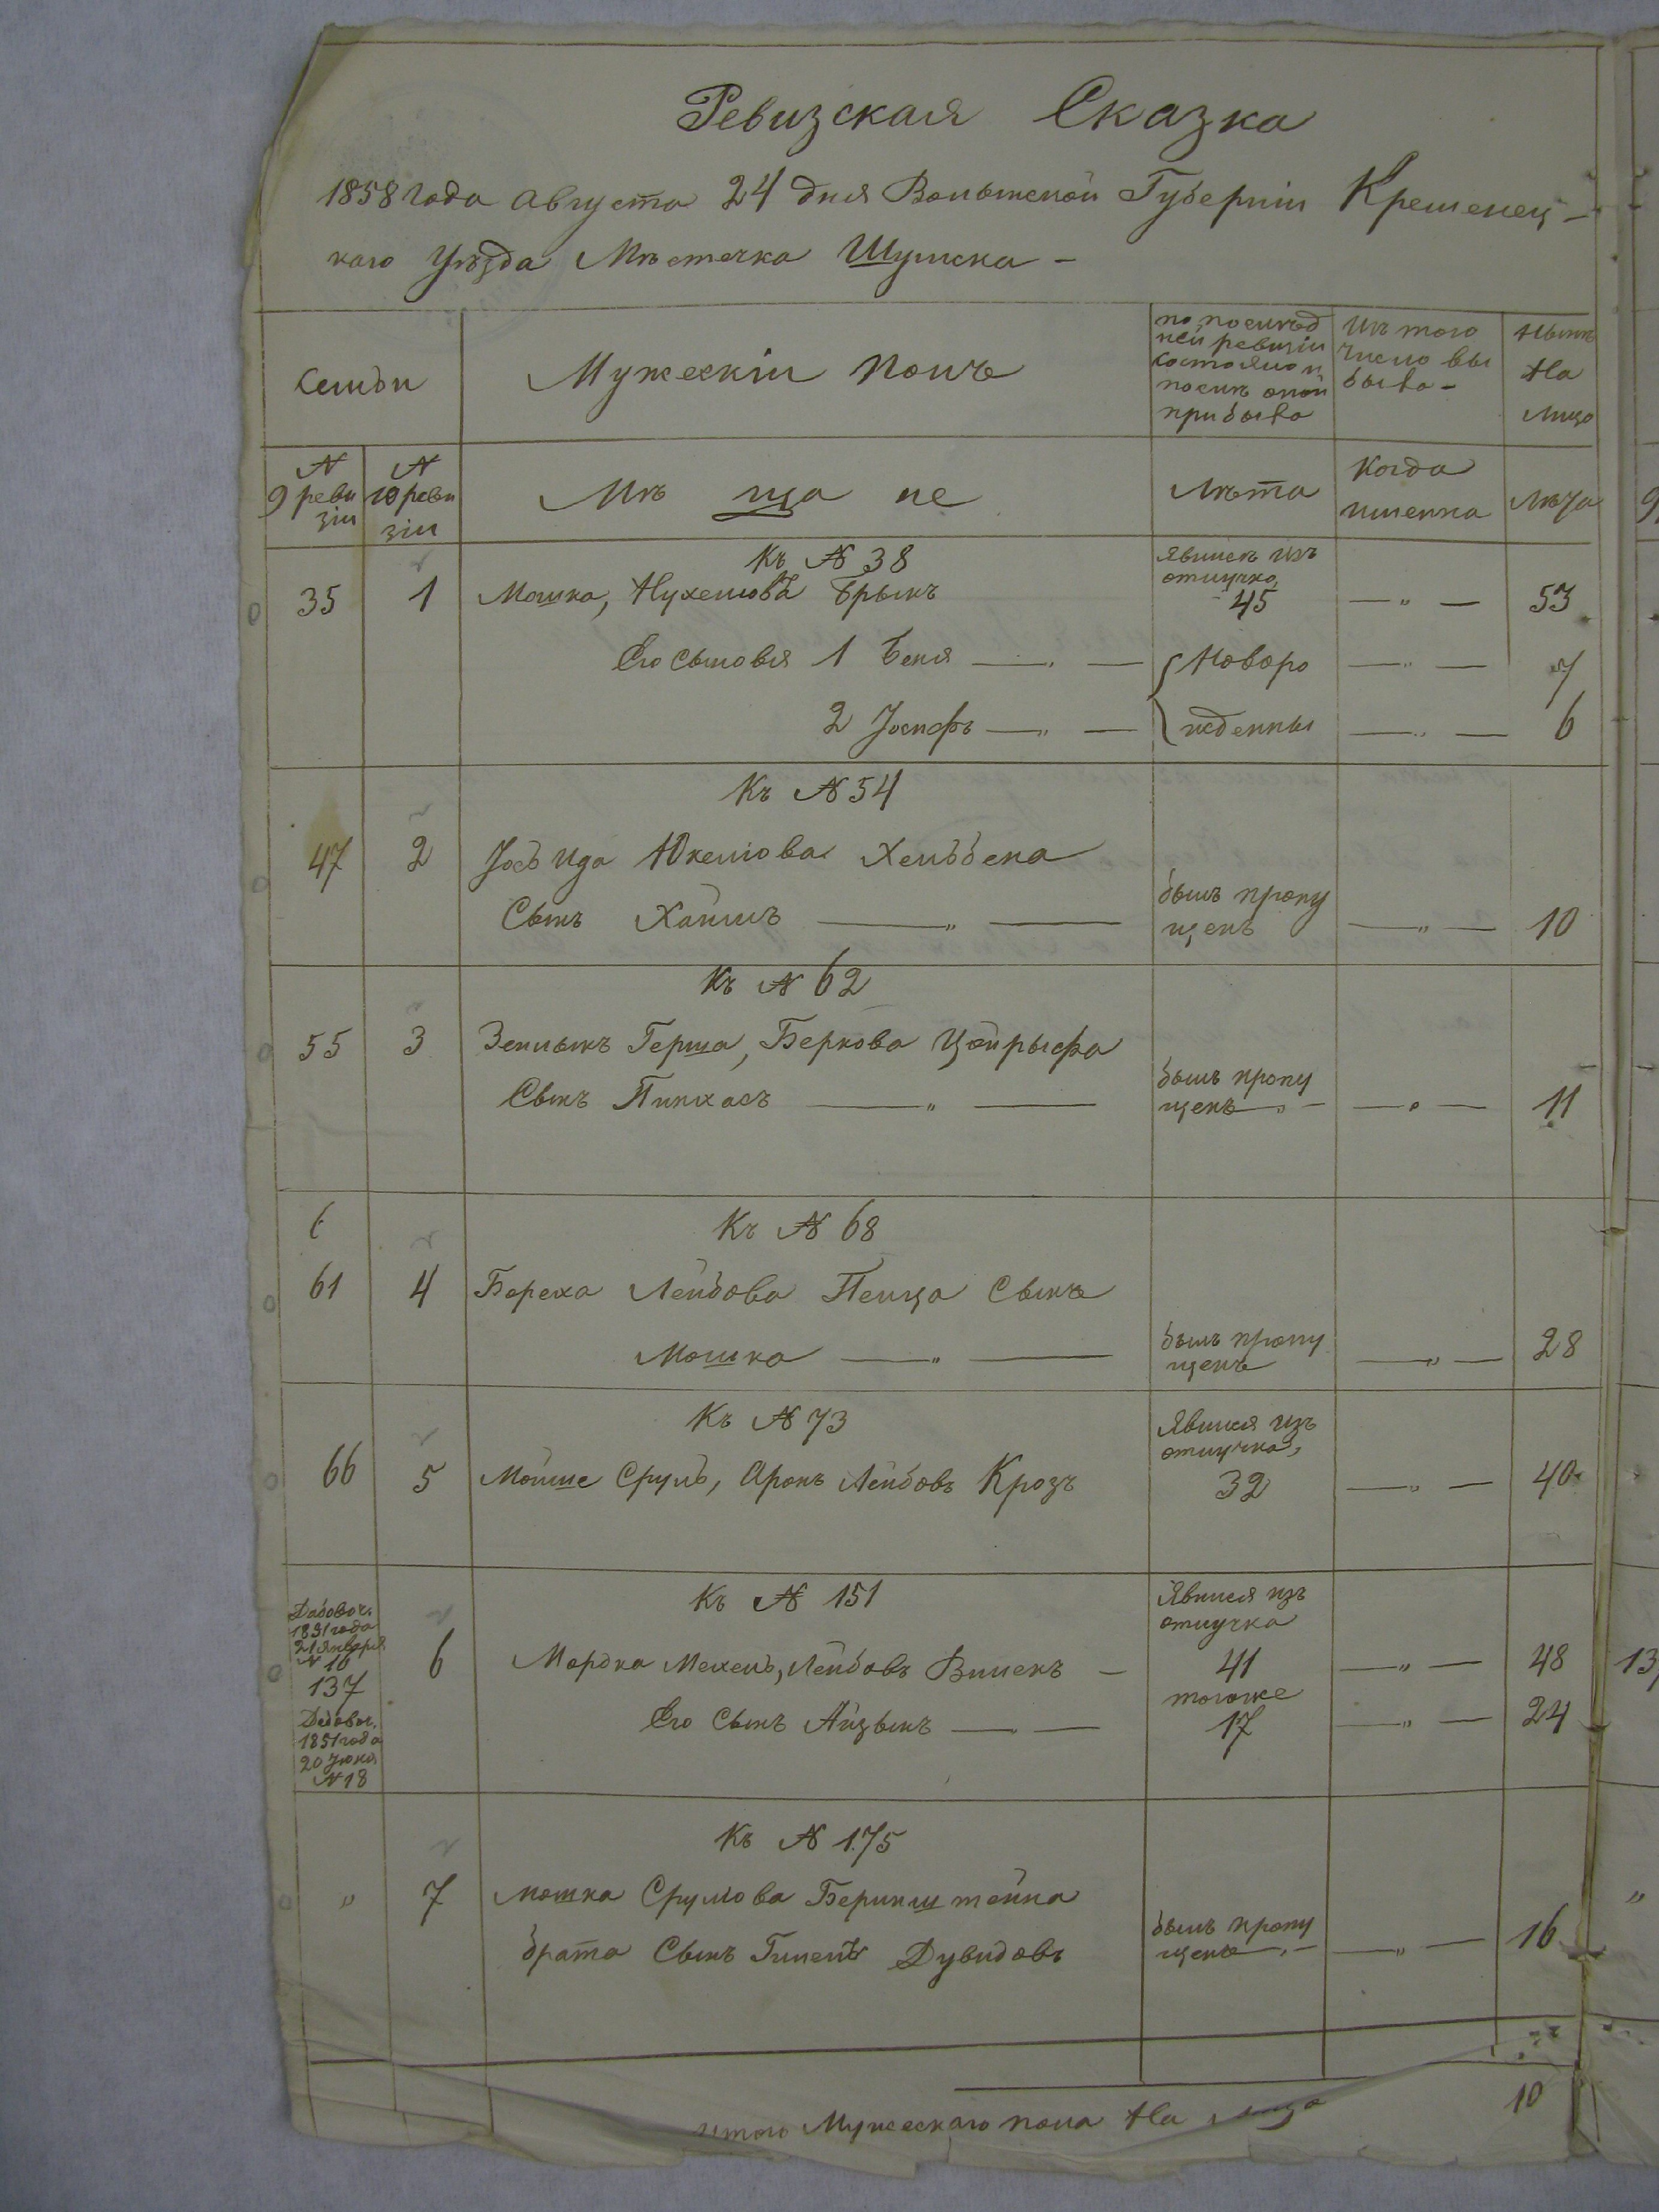 Ревизская Сказка
1858 года августа 24 дня Волынской Губерніи Кременец-
каго Уѣзда Мѣстечка Шумска -
Семьи
Мужескій полъ
по послѣд
ней ревизіи
состояло и
послѣ оной
прибыло
Изъ того
числа вы
было -
Нынѣ
На
лицо
№
9 реви
зіи
№
10 реви
зіи
Мѣ ща не
Лѣта
Когда
именно
Лѣта
Къ № 38
35 1 Мошко, Нухимовъ Брыкъ
явился изъ
отлучки
45 — " — 53
Его сыновья 1 Беня — " — Новоро — " — 7
2 Іосифъ — " — жденны — " — 6
Къ № 54
47 2 Іось Юкелiова Хельбена
Сынъ Хаимъ — " —
былъ пропу
щенъ — " — 10
Къ № 62
55 3 Зельманъ Герша, Беркова Цойрыфа
Сынъ Пинхасъ — " —
былъ пропу
щенъ — " — — " — 11
6
Къ № 68
61 4 Бореха Лейбова Пельца Сынъ
Мошко — " —
былъ пропу
щенъ — " — 28
Къ № 73
66 5 Мойше Сруль, Аронъ Лейбовъ Крозъ
Явился изъ
отлучки,
32 — " — 40
Добавоч.
1851 года
21 Января
№ 16
137
Добавоч.
1851 года
20
№ 18
Къ № 151
6 Мордко Мехель, Лейбовъ —
Явился изъ
отлучка
41 — " — 48
Его сынъ Айзыкъ — " —
тогоже
17 — " — 24
Къ № 175
" 7 Мошка Срулова Беринштейна
брата Сынъ Гилель Дувидовъ
былъ пропу
щенъ — " — — " — 16
итого Мужескаго пола На лицо 10